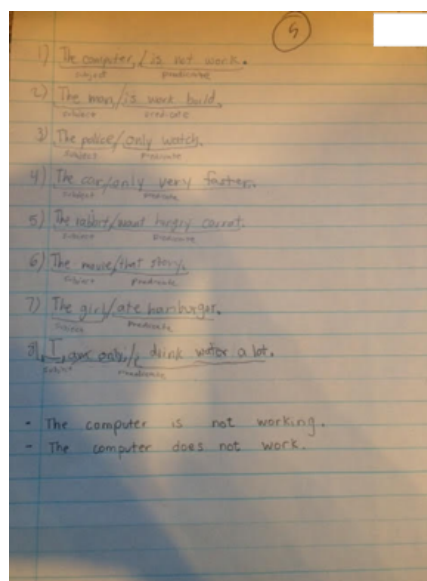 5
1) The computer / is not work.
subject predicate
2) The man / is work build.
subject predicate
3) The police / only watch.
subject predicate
4) The car / only very faster.
subject predicate
5) The rabbit / want hungry carrot.
subject predicate
6) The movie / that story.
subject predicate
7) The girl / ate hamburger.
subject predicate
8) I only / drink water a lot.
subject predicate
- The computer is not working.
- The computer does not work.